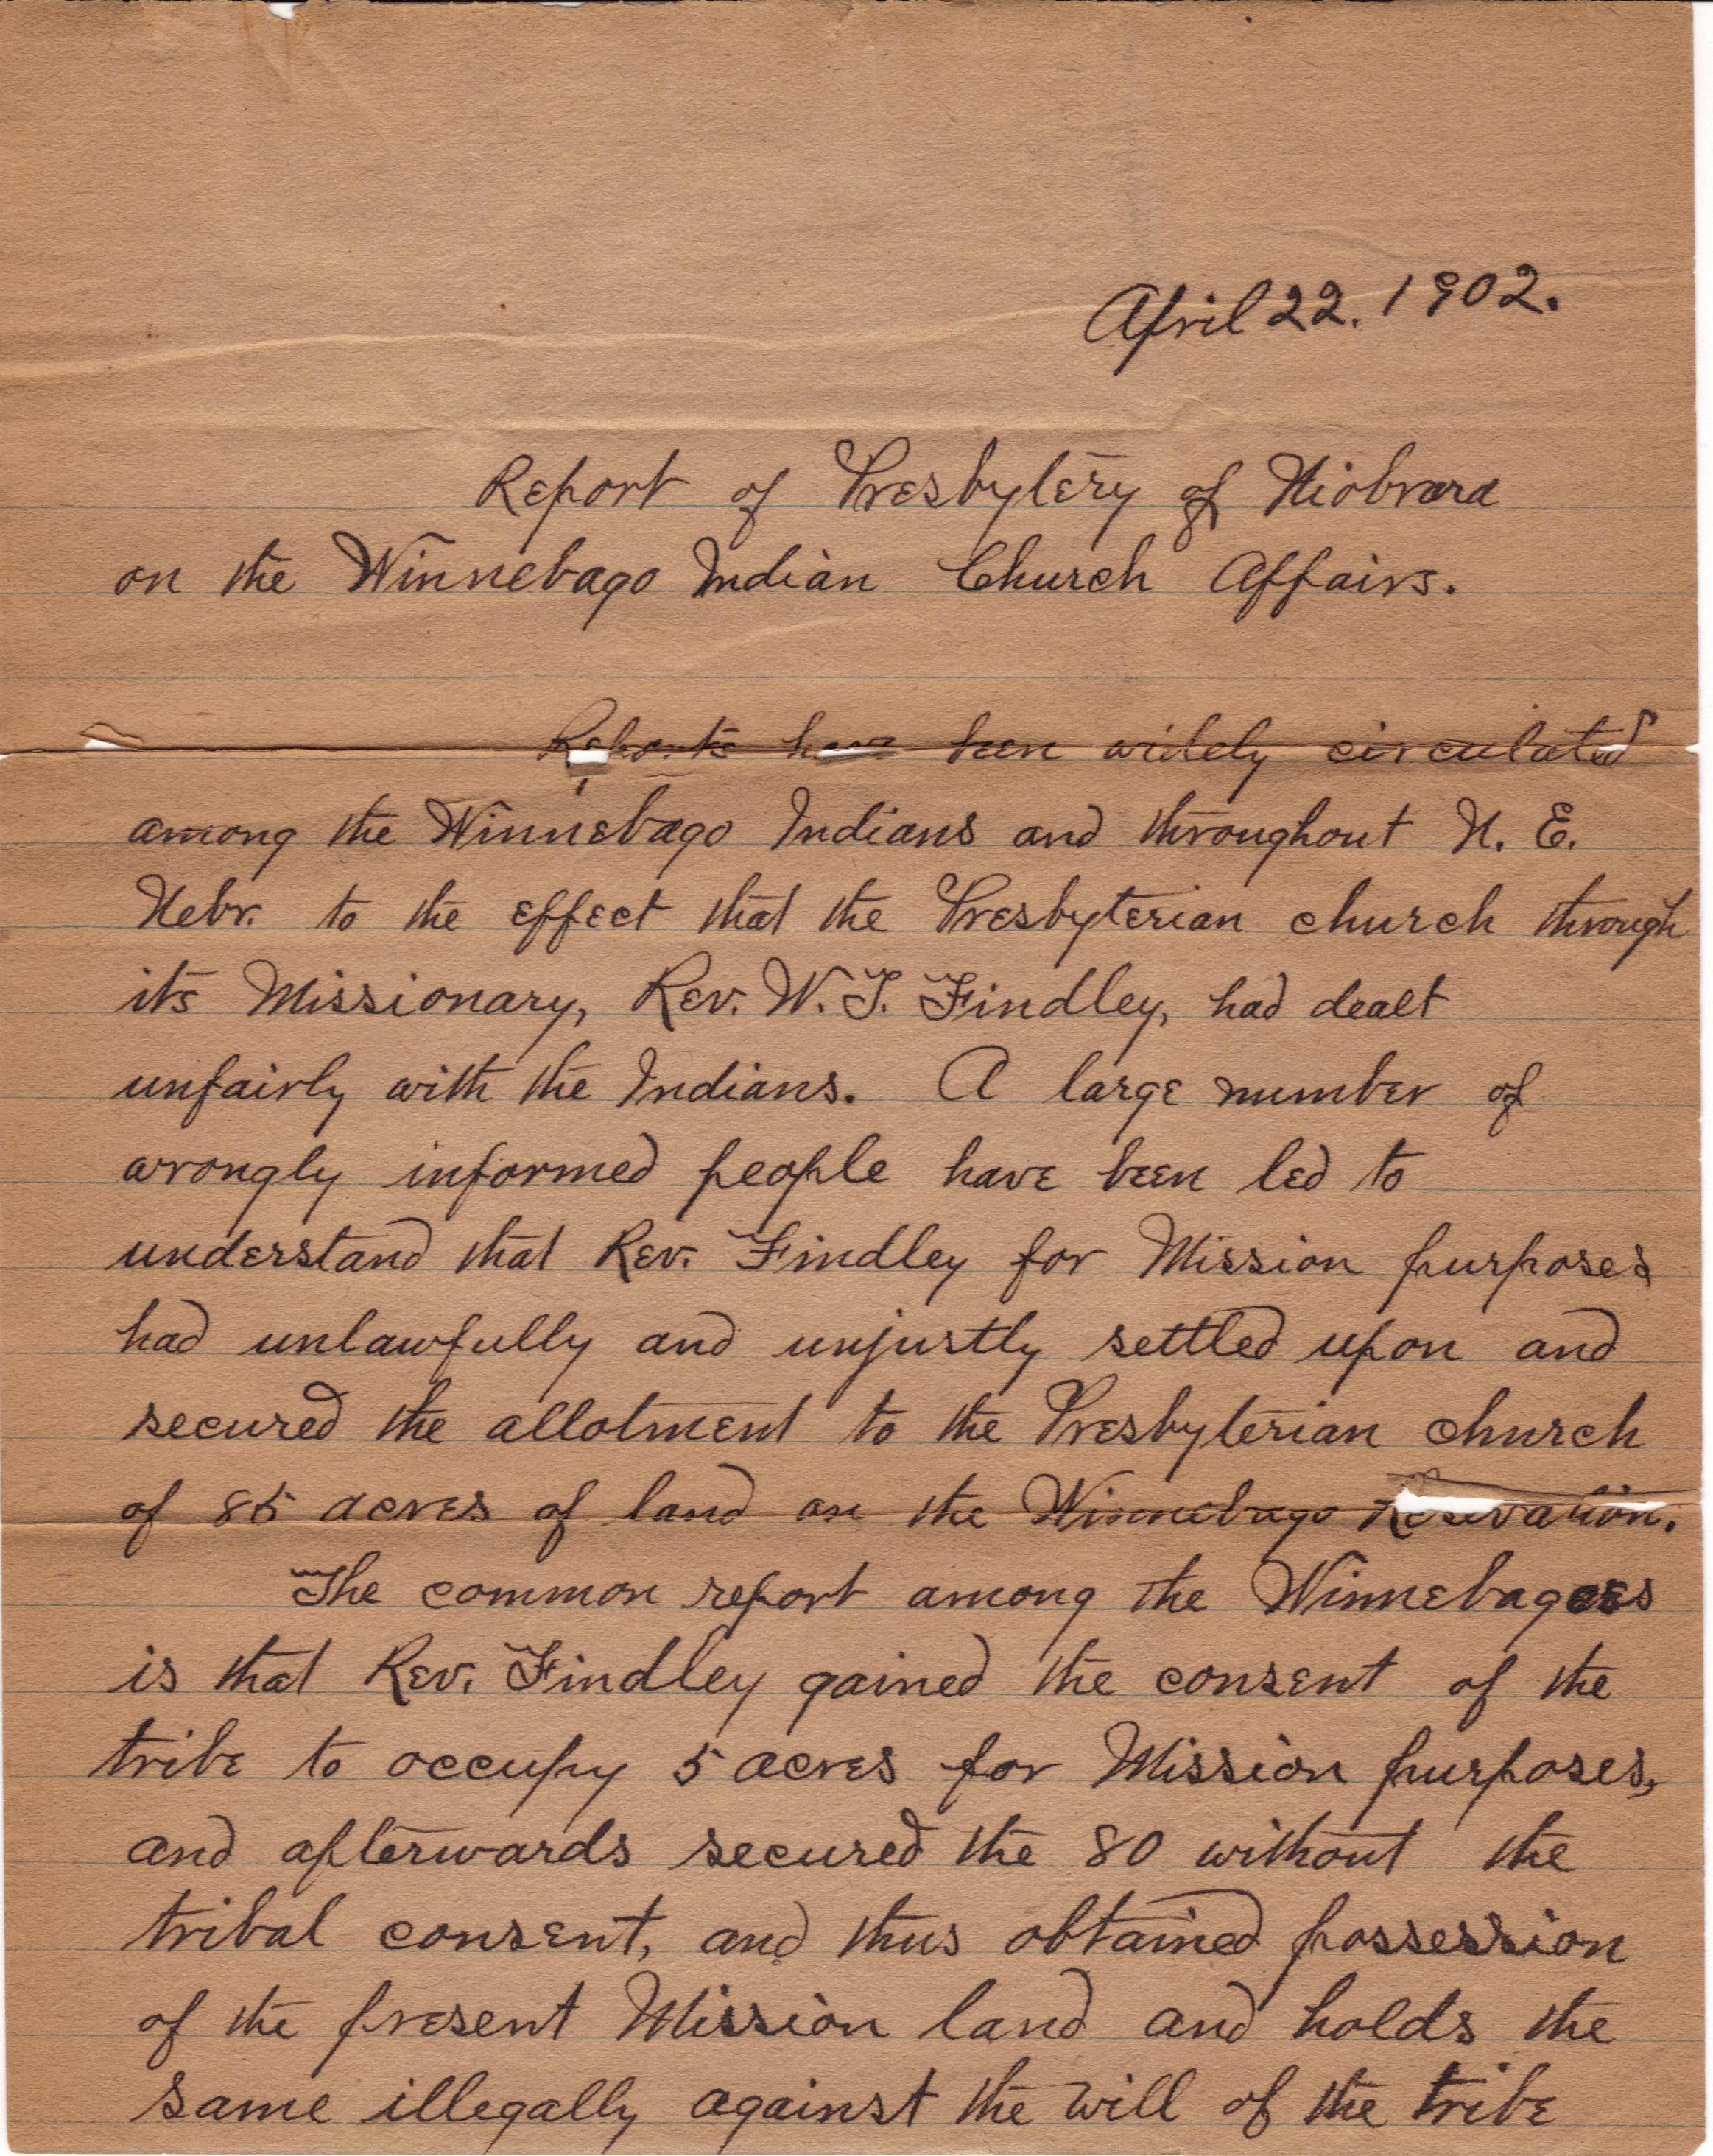 April 22. 1902.
Report of Presbytery of Niobrara
on the Winnebago Indian Church Affairs.
Reports have been widely circulated
among the Winnebago Indians and throughout N. E.
Nebr. to the effect that the Presbyterian church through
its Missionary, Rev. W. T. Findley, had dealt
unfairly with the Indians. A large number of
wrongly informed people have been led to
understand that Rev. Findley for Mission purposes
had unlawfully and unjustly settled upon and
secured the allotment to the Presbyterian church
of 85 acres of land on the Winnebago Reservation.
The common report among the Winnebagoes
is that Rev. Findley gained the consent of the
tribe to occupy 5 acres for Mission purposes,
and afterwards secured the 80 without the
tribal consent, and thus obtained possession
of the present Mission land and holds the
same illegally against the will of the tribe